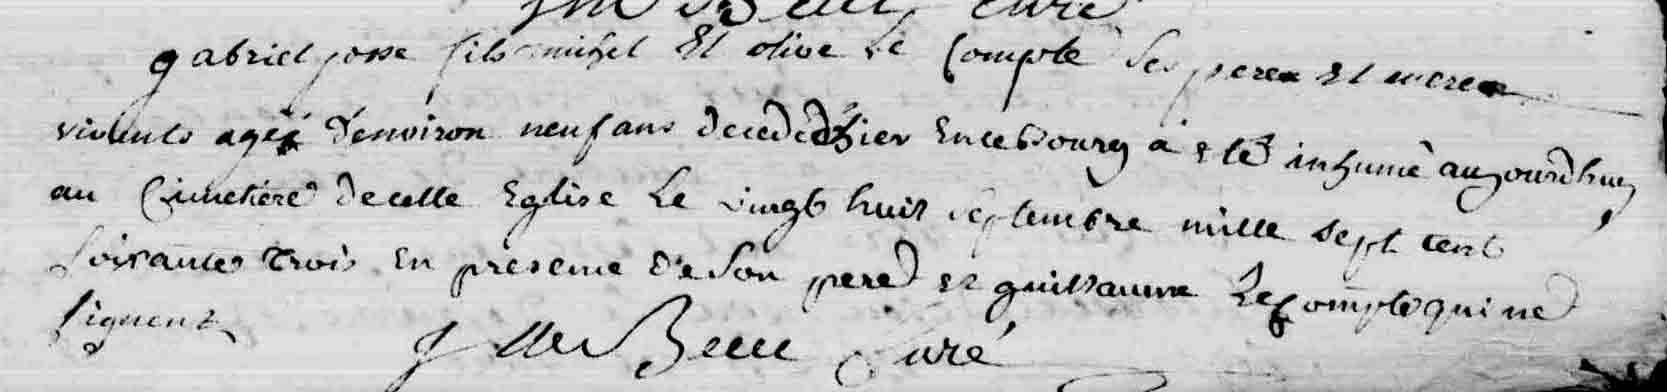 curé
gabriel josse fils michel Et olive Le Compte Ses pere Et mere
vivants agé d'environ neuf ans decedé hier En ce bourg a eté inhumé aujourd'huy
au Cimetiere de cette Eglise Le vingt huit septembre mille sept cent
soixante trois En presence de Son pere et guillaume Le Compte qui ne
signent
Curé